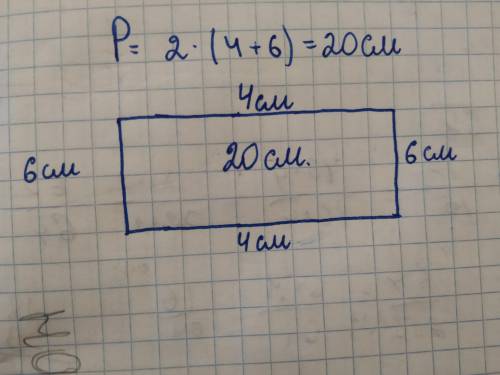 P = 2 · (4 + 6) = 20 см
4 см
6 см
20 см.
6 см
4 см